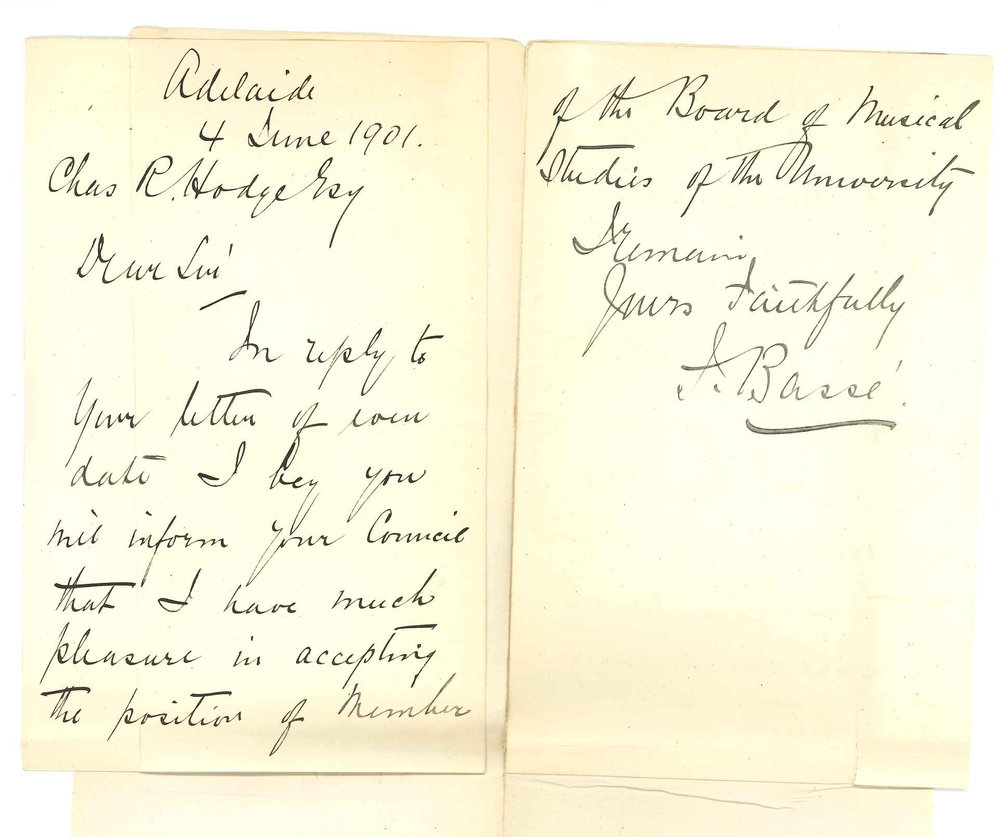 Adelaide
4 June 1901.
Chas R. Hodge Esq
Dear Sir
In reply to
your letter of even
date I beg you
will inform your Council
that I have much
pleasure in accepting
the position of Member
of the Board of Musical
Studies of the University
I remain
Yours Faithfully
F. Bassé.